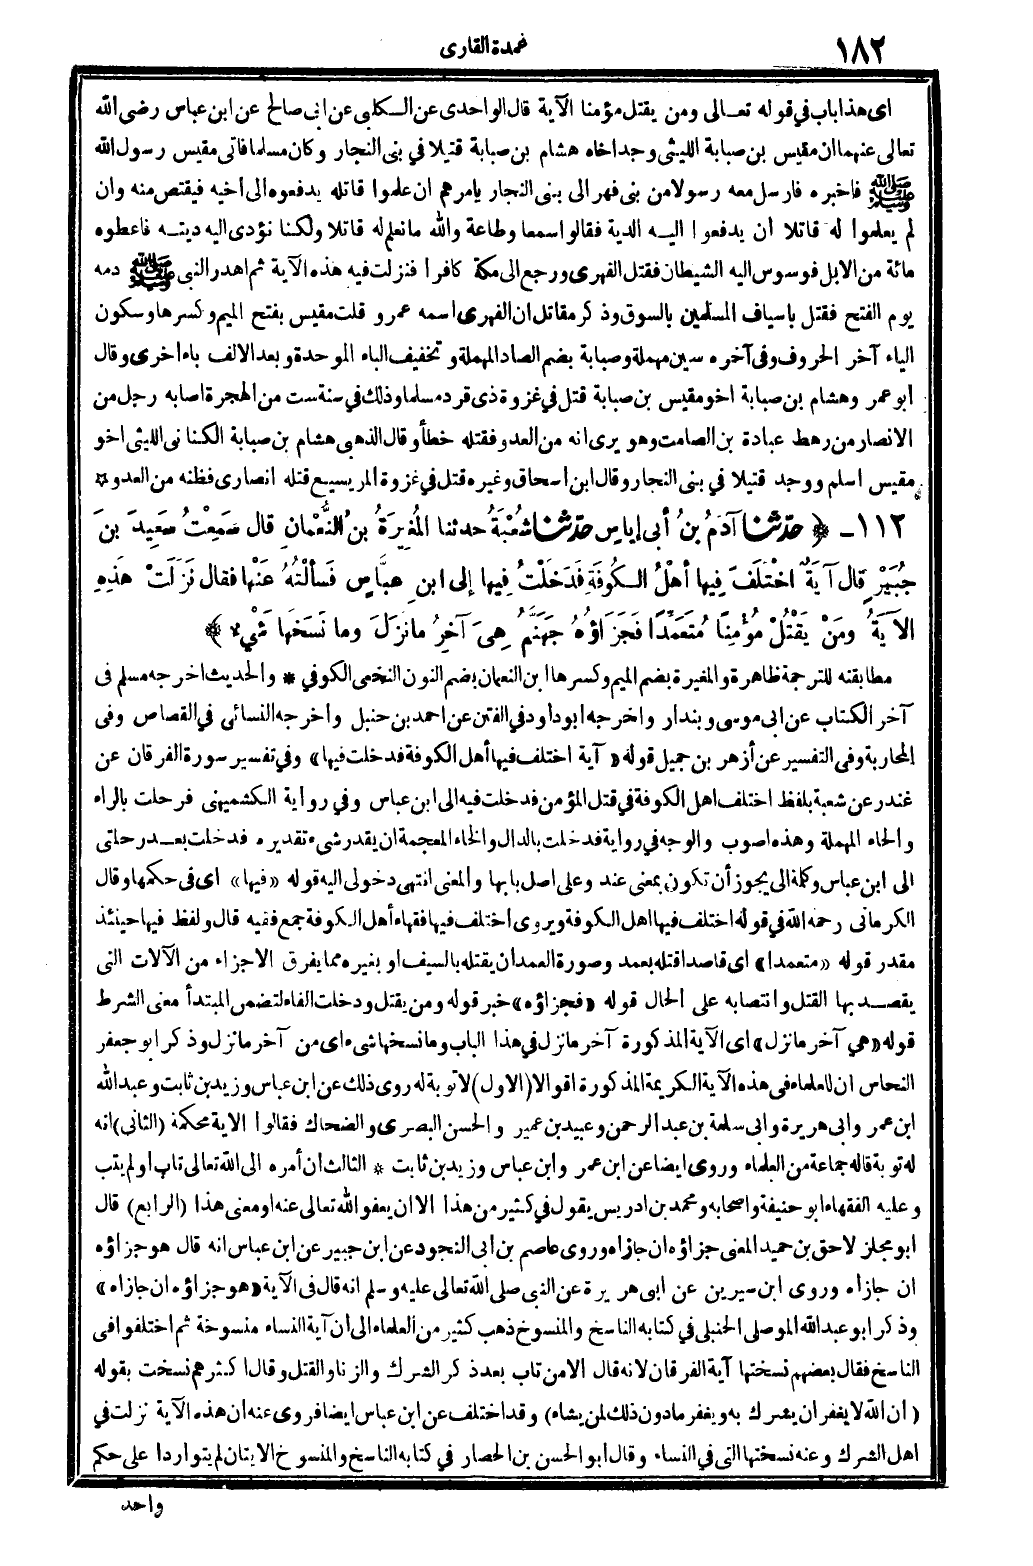 ١٨٢
عمدة القارى
اى هذا باب في قوله تعـالى ومن يقتل مؤمنا الآية قال الواحدى عن الـكلبى عن ابى صالح عن ابن عباس رضى الله
تعالى عنهما ان مقيس بن صبابة الليثى وجد اخاه هشام بن صبابة قتيلا في بنى النجار وكان مسلما فاتى مقيس رسول الله
ﷺ فاخبره فارسل معه رسولا من بنى فهر الى بنى النجار يامرهم ان علموا قاتله يدفعوه الى اخيه فيقتص منه وان
لم يعلموا له قاتلا أن يدفعوا اليـه الدية فقالوا سمعا وطاعة والله ما نعلم له قاتلا ولكنا نؤدى اليه ديتـه فاعطوه
مائة من الابل فوسوس اليه الشيطان فقتل الفهرى ورجع الى مكة كافرا فنزلت فيه هذه الآية ثم اهدر النبى ﷺ دمه
يوم الفتح فقتل باسياف المسلمين بالسوق وذكر مقاتل ان الفهرى اسمه عمرو قلت مقيس بفتح الميم وكسرها وسكون
الياء آخر الحروف وفى آخره سين مهملة وصبابة بضم الصاد المهملة وتخفيف الباء الموحدة وبعد الالف باء اخرى وقال
ابو عمر وهشام بن صبابة اخو مقيس بن صبابة قتل في غزوة ذى قرد مسلما وذلك في سنة ست من الهجرة اصابه رجل من
الانصار من رهط عبادة بن الصامت وهو يرى انه من العدو فقتله خطأ وقال الذهبى هشام بن صبابة الكنانى الليثى اخو
مقيس اسلم ووجد قتيلا في بنى النجار وقال ابن اسحاق وغيره قتل في غزوة المريسيع قتله انصارى فظنه من العدو *
١١٢ - ﴿ حدّثنا آدَمُ بنُ أبى إياسٍ حدّثنا شُعْبَةُ حدثنا المُغِيرَةُ بنُ النُّعْمانِ قال سَمِعْتُ سَعِيدَ بنَ
جُبَيْرٍ قال آيَةٌ اخْتَلَفَ فِيها أهْلُ الـكُوفَةِ فَدَخَلْتُ فِيها إلى ابنِ عبَّاسٍ فَسألْتُهُ عَنْها فقال نَزَلَتْ هذِهِ
الآيَةُ ومَنْ يَقْتُلْ مُؤْمِنًا مُتَعَمِّدًا فَجَزَاؤُهُ جَهَنَّمُ هِىَ آخِرُ ما نَزَلَ وما نَسَخَها شَىْءٌ ﴾
مطابقته للترجمة ظاهرة والمغيرة بضم الميم وكسرها ابن النعمان بضم النون النخعى الكوفي * والحديث اخرجه مسلم فى
آخر الكتاب عن ابى موسى وبندار واخرجه ابو داود في الفتن عن احمد بن حنبل واخرجه النسائى في القصاص وفى
المحاربة وفى التفسير عن أزهر بن جميل قوله « آية اختلف فيها أهل الكوفة فدخلت فيها » وفي تفسير سورة الفرقان عن
غندر عن شعبة بلفظ اختلف اهل الكوفة في قتل المؤمن فدخلت فيه الى ابن عباس وفي رواية الكشميهنى فرحلت بالراء
والحاء المهملة وهذه اصوب والوجه في رواية فدخلت بالدال والخاء المعجمة ان يقدر شىء تقديره فدخلت بعـد رحلتى
الى ابن عباس وكلمة الى يجوز أن تكون بمعنى عند وعلى اصل بابها والمعنى انتهى دخولى اليه قوله « فيها » اى فى حكمها وقال
الكرمانى رحمه الله في قوله اختلف فيها اهل الكوفة ويروى اختلف فيها فقهاء أهل الكوفة جمع فقيه قال ولفظ فيها حينئذ
مقدر قوله « متعمدا » اى قاصدا قتله بعمد وصورة العمد أن يقتله بالسيف او بغيره مما يفرق الاجزاء من الآلات التى
يقصـد بها القتل وانتصابه على الحال قوله « فجزاؤه » خبر قوله ومن يقتل ودخلت الفاء لتضمن المبتدأ معنى الشرط
قوله « هي آخر ما نزل » اى الآية المذكورة آخر ما نزل في هذا الباب وما نسخها شىء اى من آخر ما نزل وذكر ابو جعفر
النحاس ان للعلماء في هذه الآية الكريمة المذكورة اقوالا (الاول) لا توبة له روى ذلك عن ابن عباس وزيد بن ثابت وعبد الله
ابن عمر وابى هريرة وابى سلمة بن عبد الرحمن وعبيد بن عمير والحسن البصرى والضحاك فقالوا الاية محكمة (الثانى) انه
له توبة قاله جماعة من العلماء وروى ايضا عن ابن عمر وابن عباس وزيد بن ثابت * الثالث ان أمره الى الله تعالى تاب او لم يتب
وعليه الفقهاء ابو حنيفة واصحابه ومحمد بن ادريس يقول في كثير من هذا الا ان يعفو الله تعالى عنه او معنى هذا (الرابع) قال
ابو مجلز لاحق بن حميد المعنى جزاؤه ان جازاه وروى عاصم بن ابى النجود عن ابن جبير عن ابن عباس انه قال هو جزاؤه
ان جازاه وروى ابن سيرين عن ابى هريرة عن النبى صلى الله تعالى عليه وسلم انه قال فى الآية « هو جزاؤه ان جازاه »
وذكر ابو عبد الله الموصلى الحنبلى في كتابه الناسخ والمنسوخ ذهب كثير من العلماء الى أن آية النساء منسوخة ثم اختلفوا فى
الناسخ فقال بعضهم نسختها آية الفرقان لانه قال الا من تاب بعد ذكر الشرك والزنا والقتل وقال اكثرهم نسخت بقوله
( ان الله لا يغفر ان يشرك به ويغفر ما دون ذلك لمن يشاء) وقد اختلف عن ابن عباس ايضا فروى عنه ان هذه الآية نزلت في
اهل الشرك وعنه نسختها التى في النساء وقال أبو الحسن بن الحصار في كتابه الناسخ والمنسوخ الايتان لم يتواردا على حكم
واحد